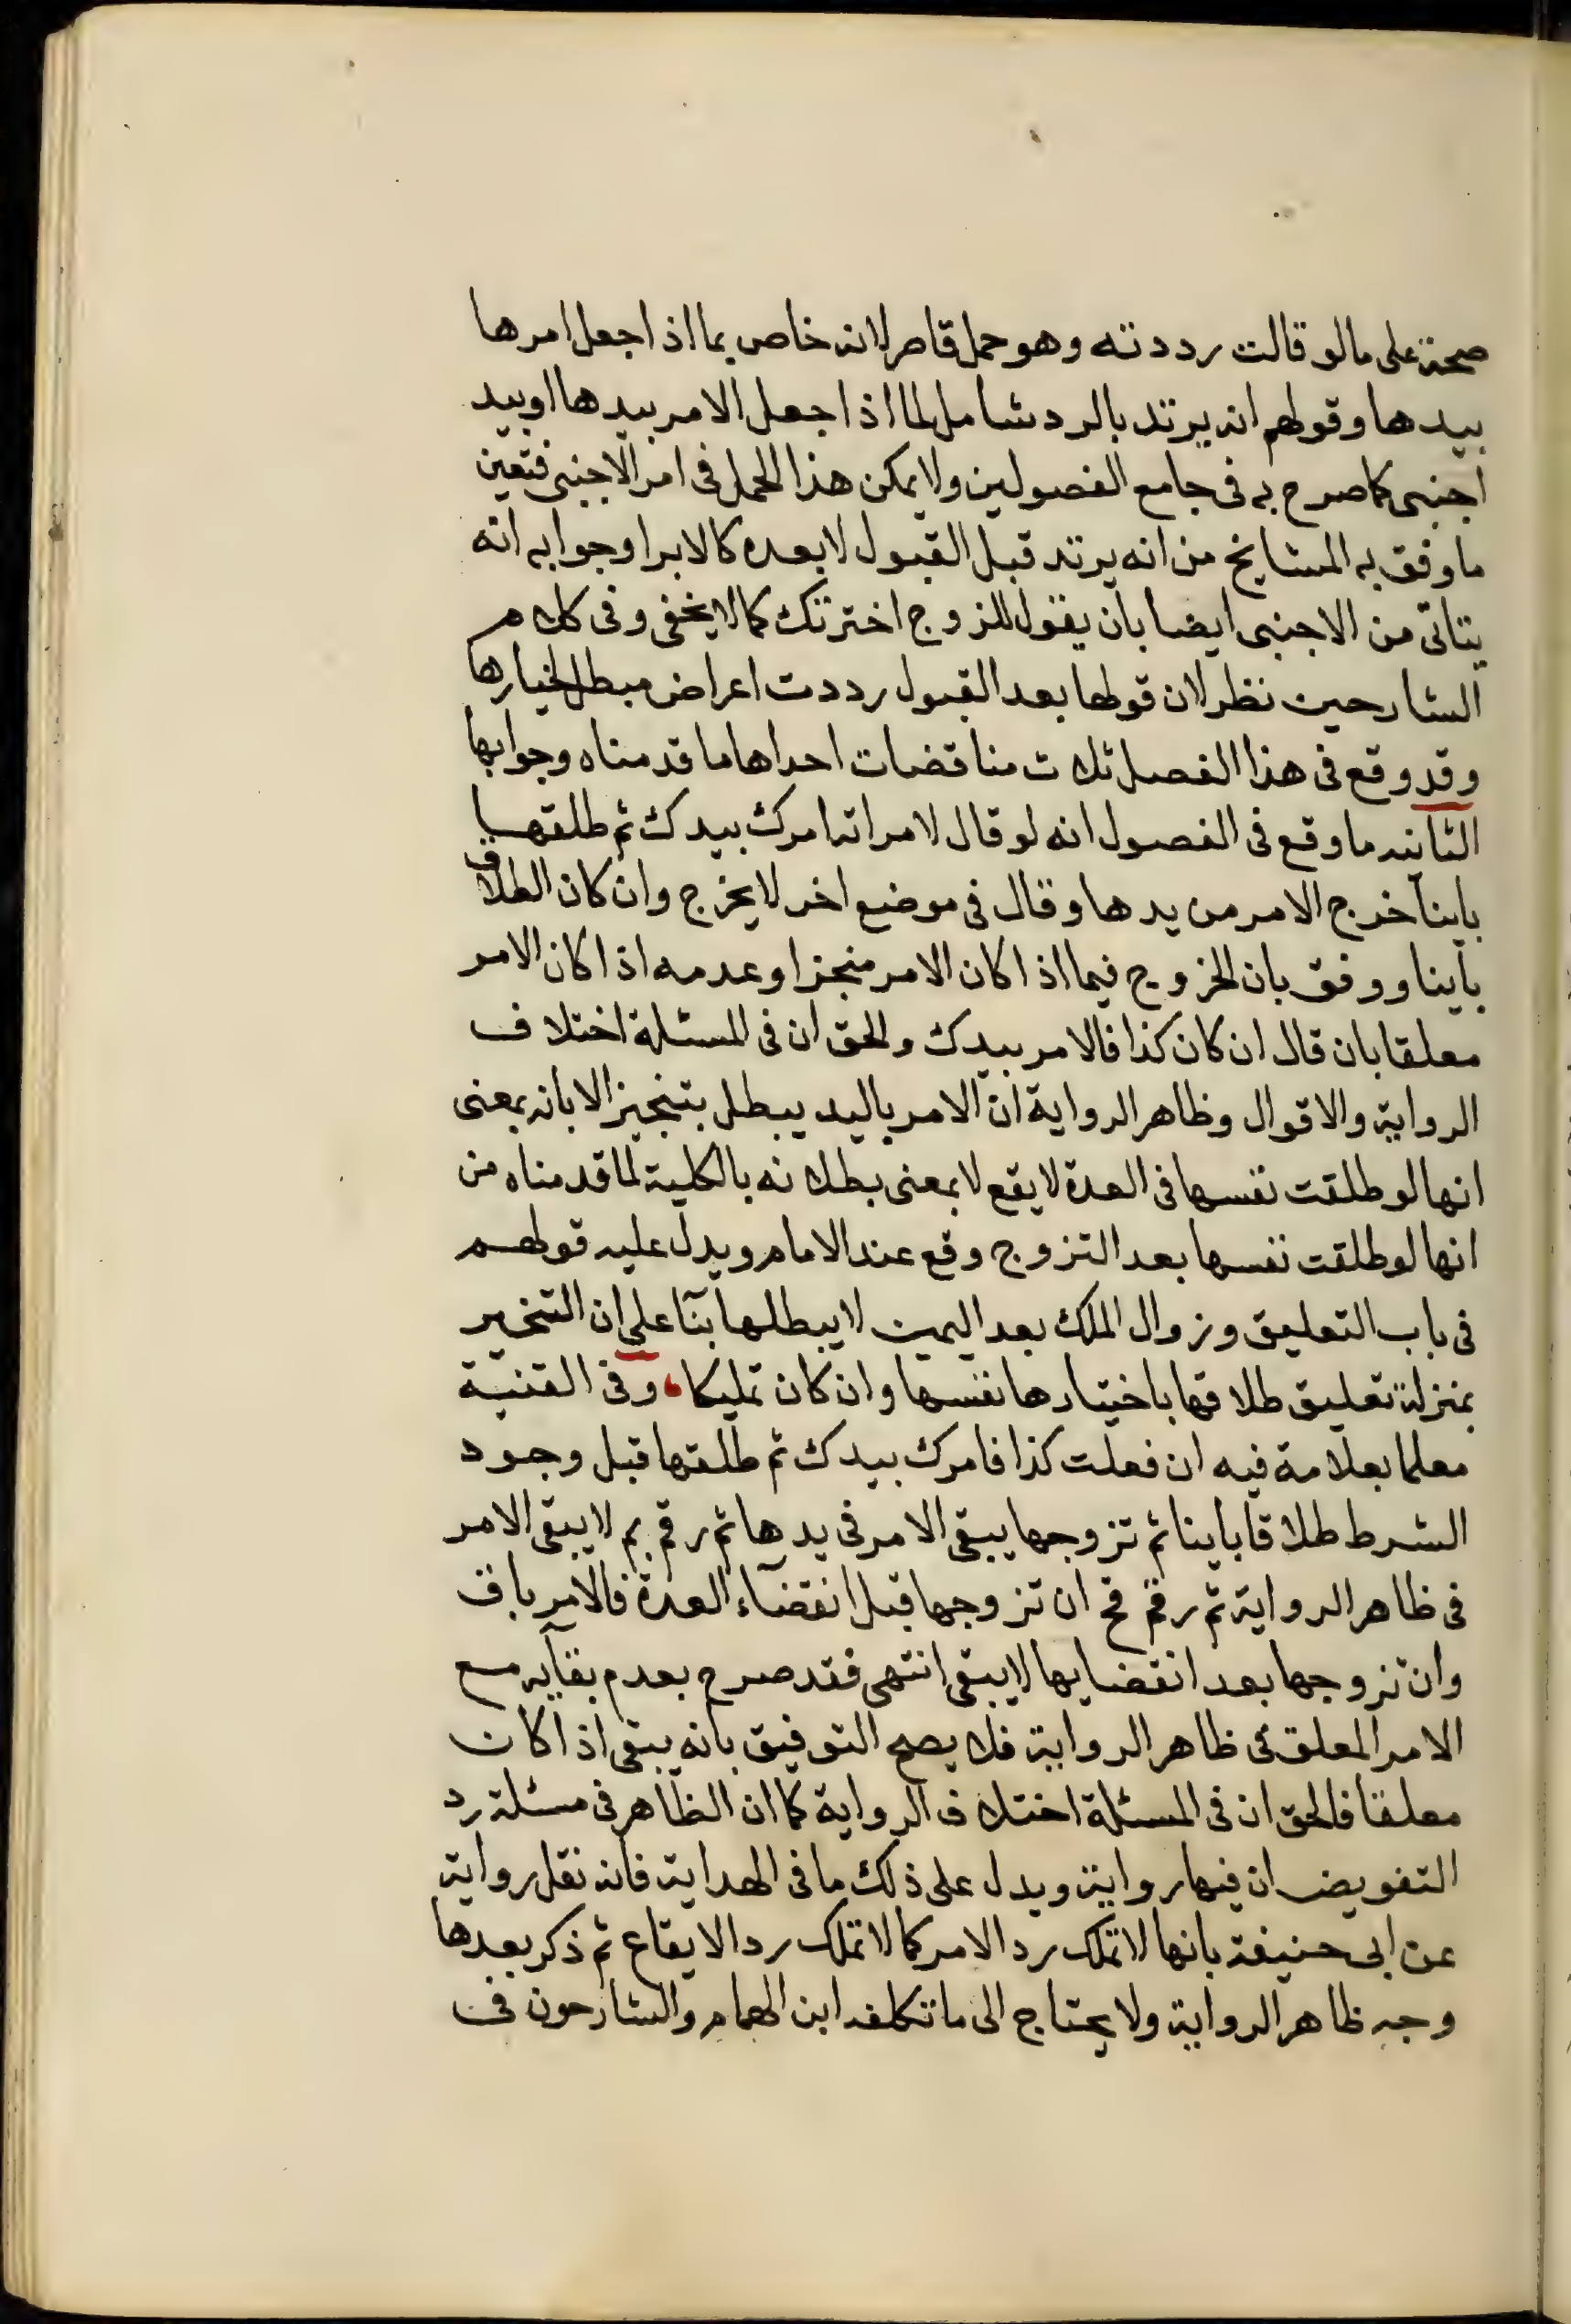 صحته على ما لو قالت رددته وهو حمل قاصر لانه خاص بما اذا جعل امرها
بيدها وقولهم انه يرتد بالرد شامل لما اذا جعل الامر بيدها او بيد
اجنبى كما صرح به فى جامع الفصولين ولا يمكن هذا الحمل فى امر الاجنبى فتعين
ما وفق به المشايخ من انه يرتد قبل القبول لا بعده كالابرا وجوابه انه
يتاتى من الاجنبى ايضا بان يقول للزوج اخترتك كما لا يخفى وفى كلام
الشارحين نظر لان قولها بعد القبول رددت اعراض مبطل لخيارها
وقد وقع فى هذا الفصل ثلاث مناقضات احداها ما قدمناه وجوابها
الثانيه ما وقع فى الفصول انه لو قال لامراته امرك بيدك ثم طلقها
بايناً خرج الامر من يدها وقال فى موضع اخر لا يخرج وان كان الطلاق
باينا ووفق بان الخروج فيما اذا كان الامر منجزا وعدمه اذا كان الامر
معلقا بان قال ان كان كذا فالامر بيدك والحق ان فى المسئلة اختلاف
الرواية والاقوال وظاهر الرواية ان الامر باليد يبطل بتنجيز الابانه بمعنى
انها لو طلقت نفسها فى العدة لا يقع لا بمعنى بطلانه بالكلية لما قدمناه من
انها لو طلقت نفسها بعد التزوج وقع عند الامام ويدل عليه قولهم
فى باب التعليق وزوال الملك بعد اليمين لا يبطلها بنآ على ان التخيير
بمنزلة تعليق طلاقها باختيارها نفسها وان كان تمليكا، وفى القنية
معلما بعلامة فيه ان فعلت كذا فامرك بيدك ثم طلقها قبل وجود
الشرط طلاقا باينا ثم تزوجها يبقى الامر فى يدها ثم رقم بم لا يبقى الامر
فى ظاهر الرواية ثم رقم قح ان تزوجها قبل انقضآء العدة فالامر باق
وان تزوجها بعد انقضايها لا يبقى انتهى فقد صرح بعدم بقآيه مع
الامر المعلق فى ظاهر الرواية فلا يصح التوفيق بانه يبقى اذا كان
معلقا فالحق ان فى المسئلة اختلاف الرواية كما ان الظاهر فى مسئلة رد
التفويض ان فيها رواية ويدل على ذلك ما فى الهداية فانه نقل رواية
عن ابى حنيفة بانها لا تملك رد الامر كما لا تملك رد الايقاع ثم ذكر بعدها
وجه ظاهر الرواية ولا يحتاج الى ما تكلفه ابن الهمام والشارحون فى